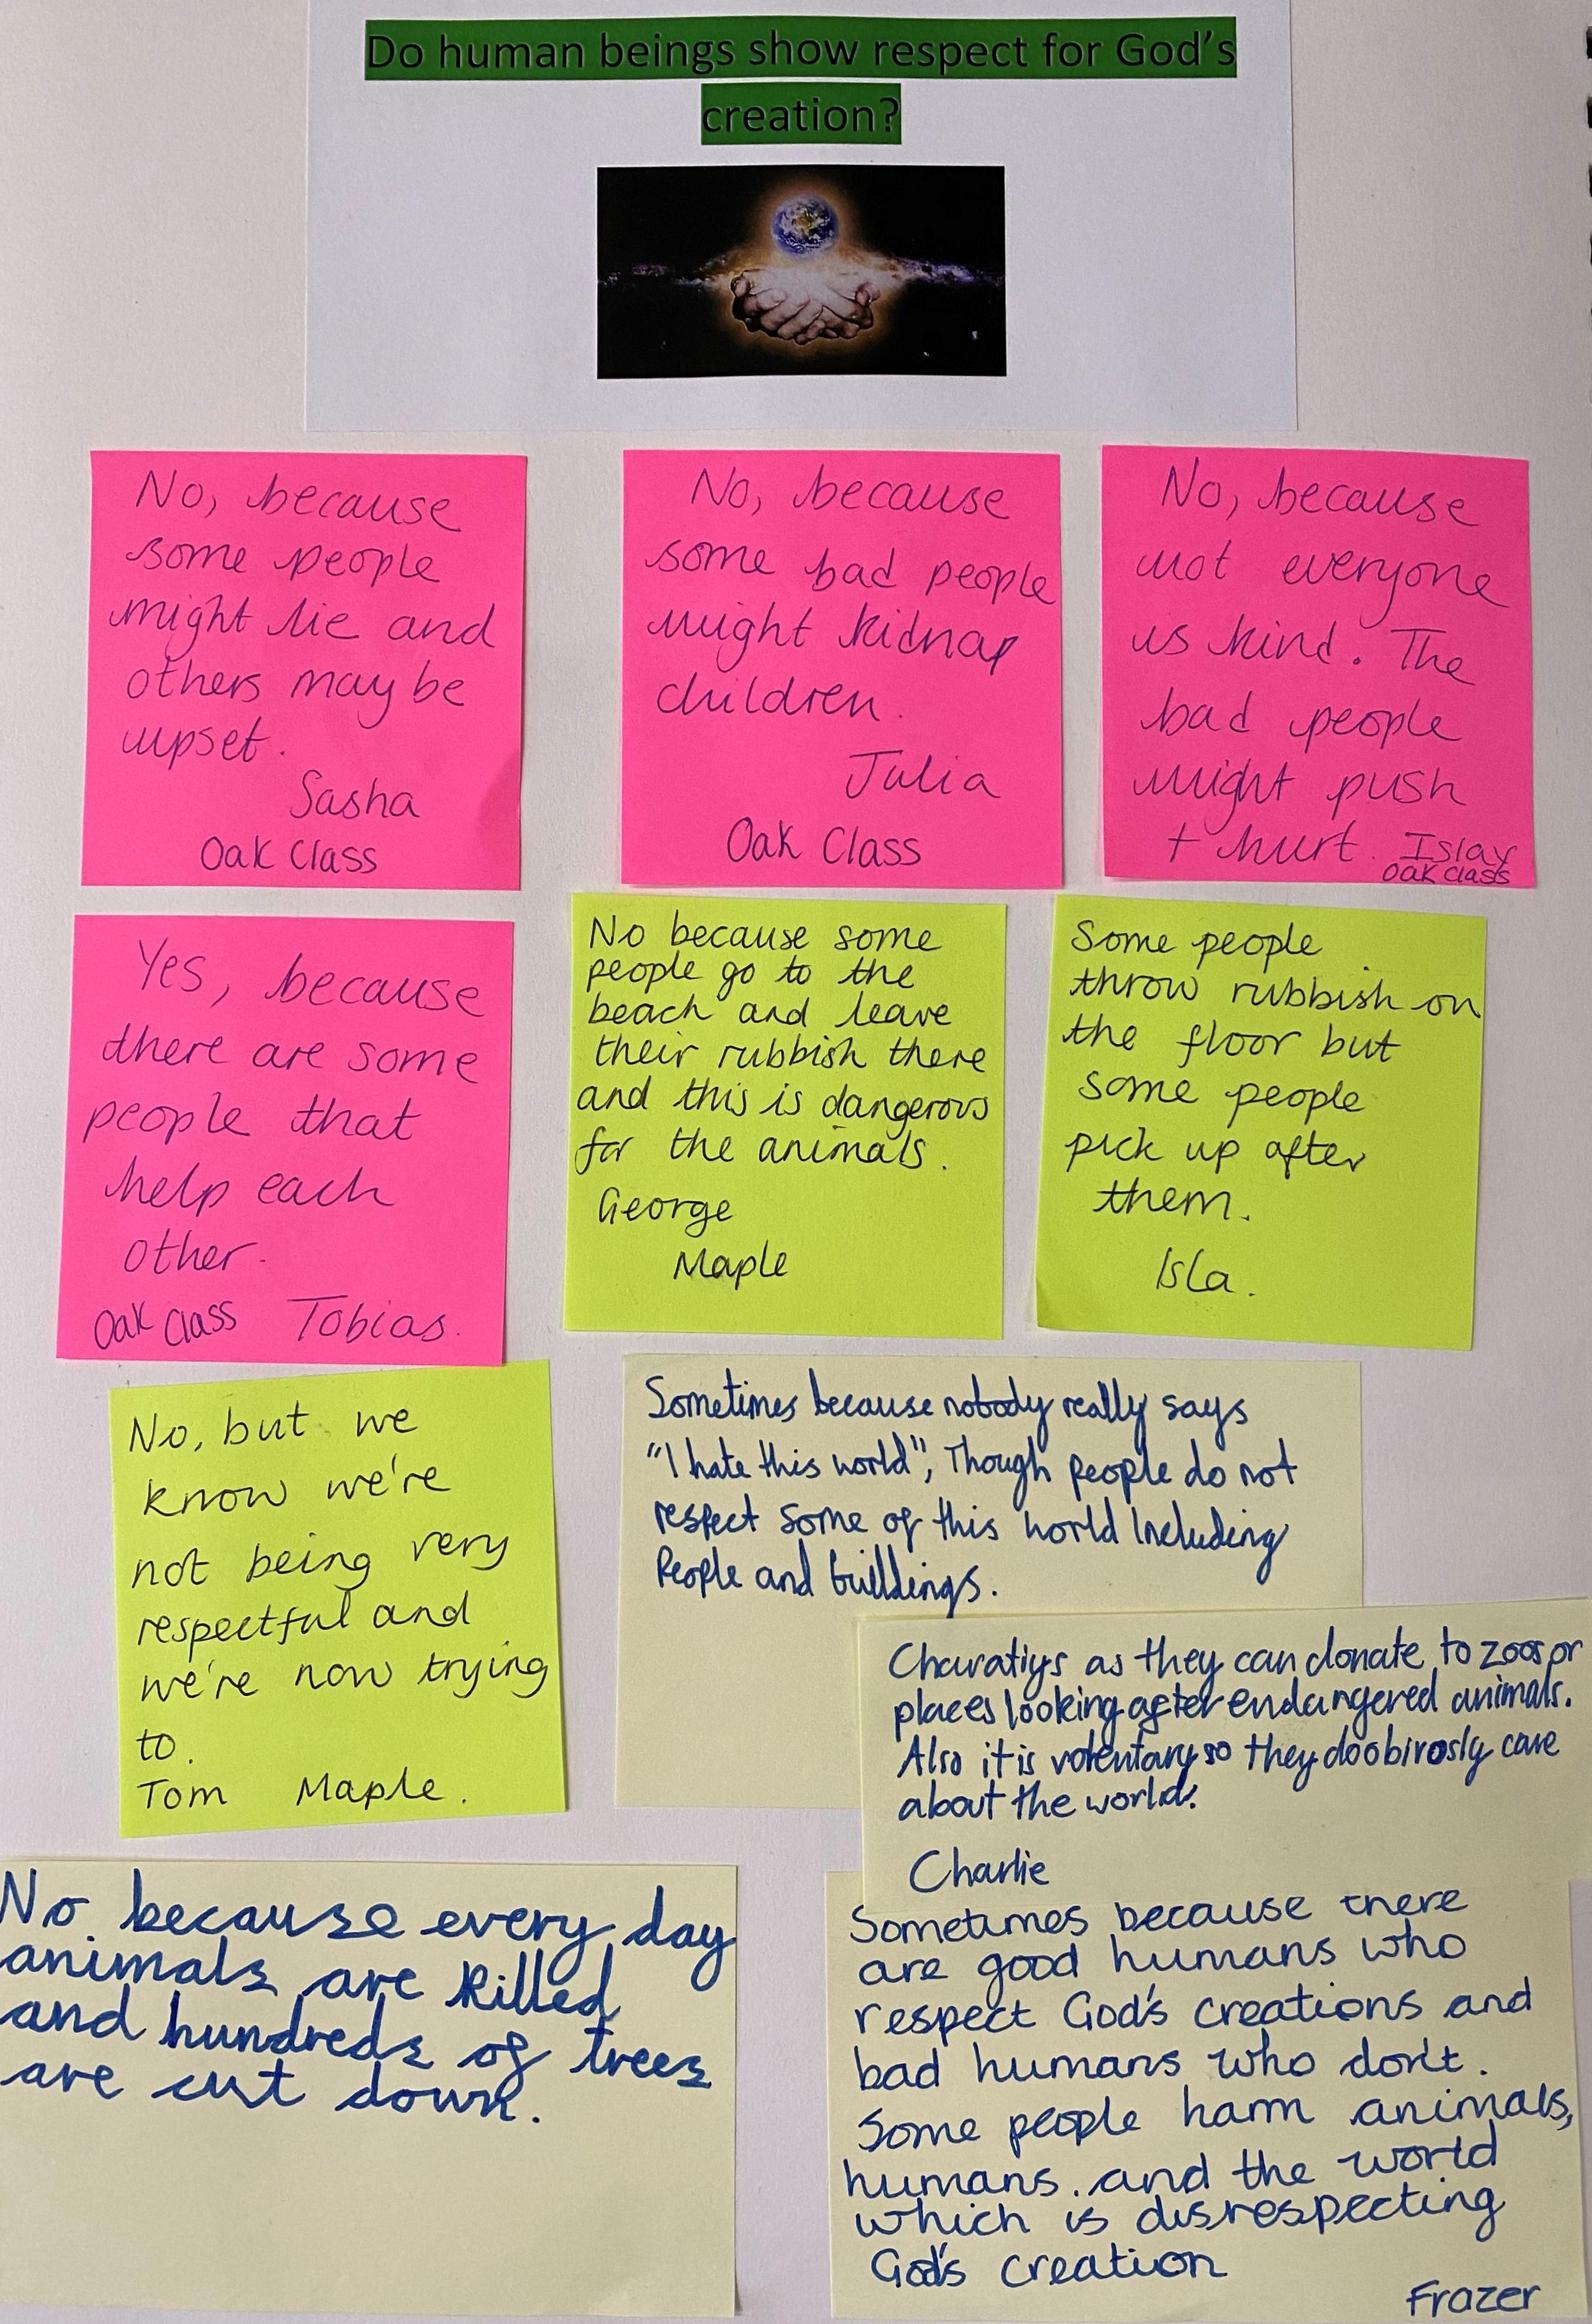 Do human beings show respect for God's
creation?
No, because
some people
might lie and
others may be
upset.
Sasha
Oak Class
No, because
some bad people
might kidnap
children.
Julia
Oak Class
No, because
not everyone
is kind. The
bad people
might push
+ hurt. Islay
Oak class
Yes, because
there are some
people that
help each
other.
Oak Class Tobias.
No because some
people go to the
beach and leave
their rubbish there
and this is dangerous
for the animals.
George
Maple
Some people
throw rubbish on
the floor but
some people
pick up after
them.
Isla.
No, but we
know we're
not being very
respectful and
we're now trying
to.
Tom Maple.
Sometimes because nobody really says
"I hate this world", Though people do not
respect some of this world Including
People and buildings.
Charatiys as they can donate to zoos or
places looking after endangered animals.
Also it is volentary so they do obirosly care
about the world.
Charlie
No because every day
animals are killed
and hundreds of trees
are cut down.
Sometimes because there
are good humans who
respect God's creations and
bad humans who don't.
Some people harm animals,
humans. and the world
which is disrespecting
God's creation
Frazer